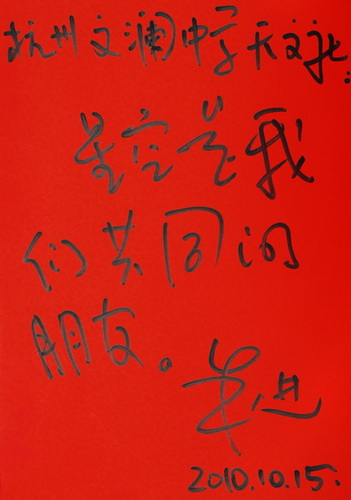 杭州文澜中学天文社:
星空是我
们共同的
朋友。
朱进
2010.10.15.